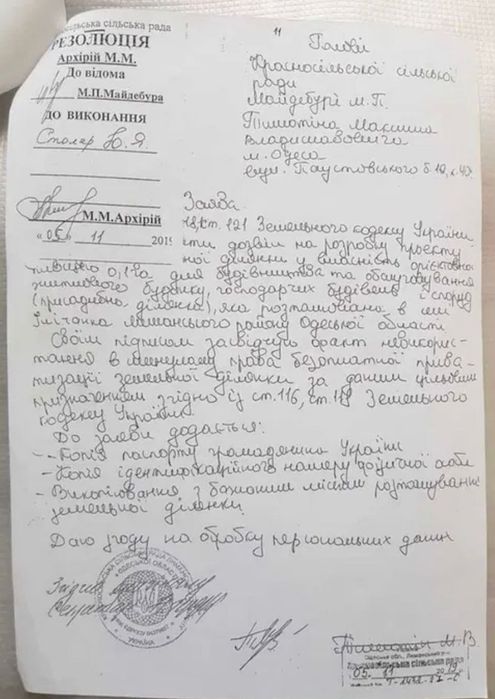 сільська рада
РЕЗОЛЮЦІЯ
Архірій М.М.
До відома
М.П.Майдебура
ДО ВИКОНАННЯ
Столяр Ю.Я.
М.М.Архірій
«05» 11 2019
Голові
Красносільської сільської
ради
Майдебурі М.П.
Пімотіна Максима
Владиславовича
м. Одеса
вул. Паустовського
Заява
ст. 121 Земельного кодексу України
дозвіл на розробку проєкту
ділянки у власність орієнтовною
площею 0,12га для будівництва та обслуговування
житлового будинку, господарчих будівель і споруд
(присадибна ділянка), яка розташована в смт
Іллічанка Лиманського району Одеської області
Своїм підписом засвідчую факт невикорис-
тання в минулому права безоплатної прива-
тизації земельної ділянки за даним цільовим
призначенням згідно із ст.116, ст. Земельного
кодексу України
До заяви додається:
- Копія паспорту громадянина України
- Копія ідентифікаційного номеру фізичної особи
- Викопіювання з бажаним місцем розташування
земельної ділянки
Даю згоду на обробку персональних даних
УКРАЇНА
М.В
сільська рада
05. 11